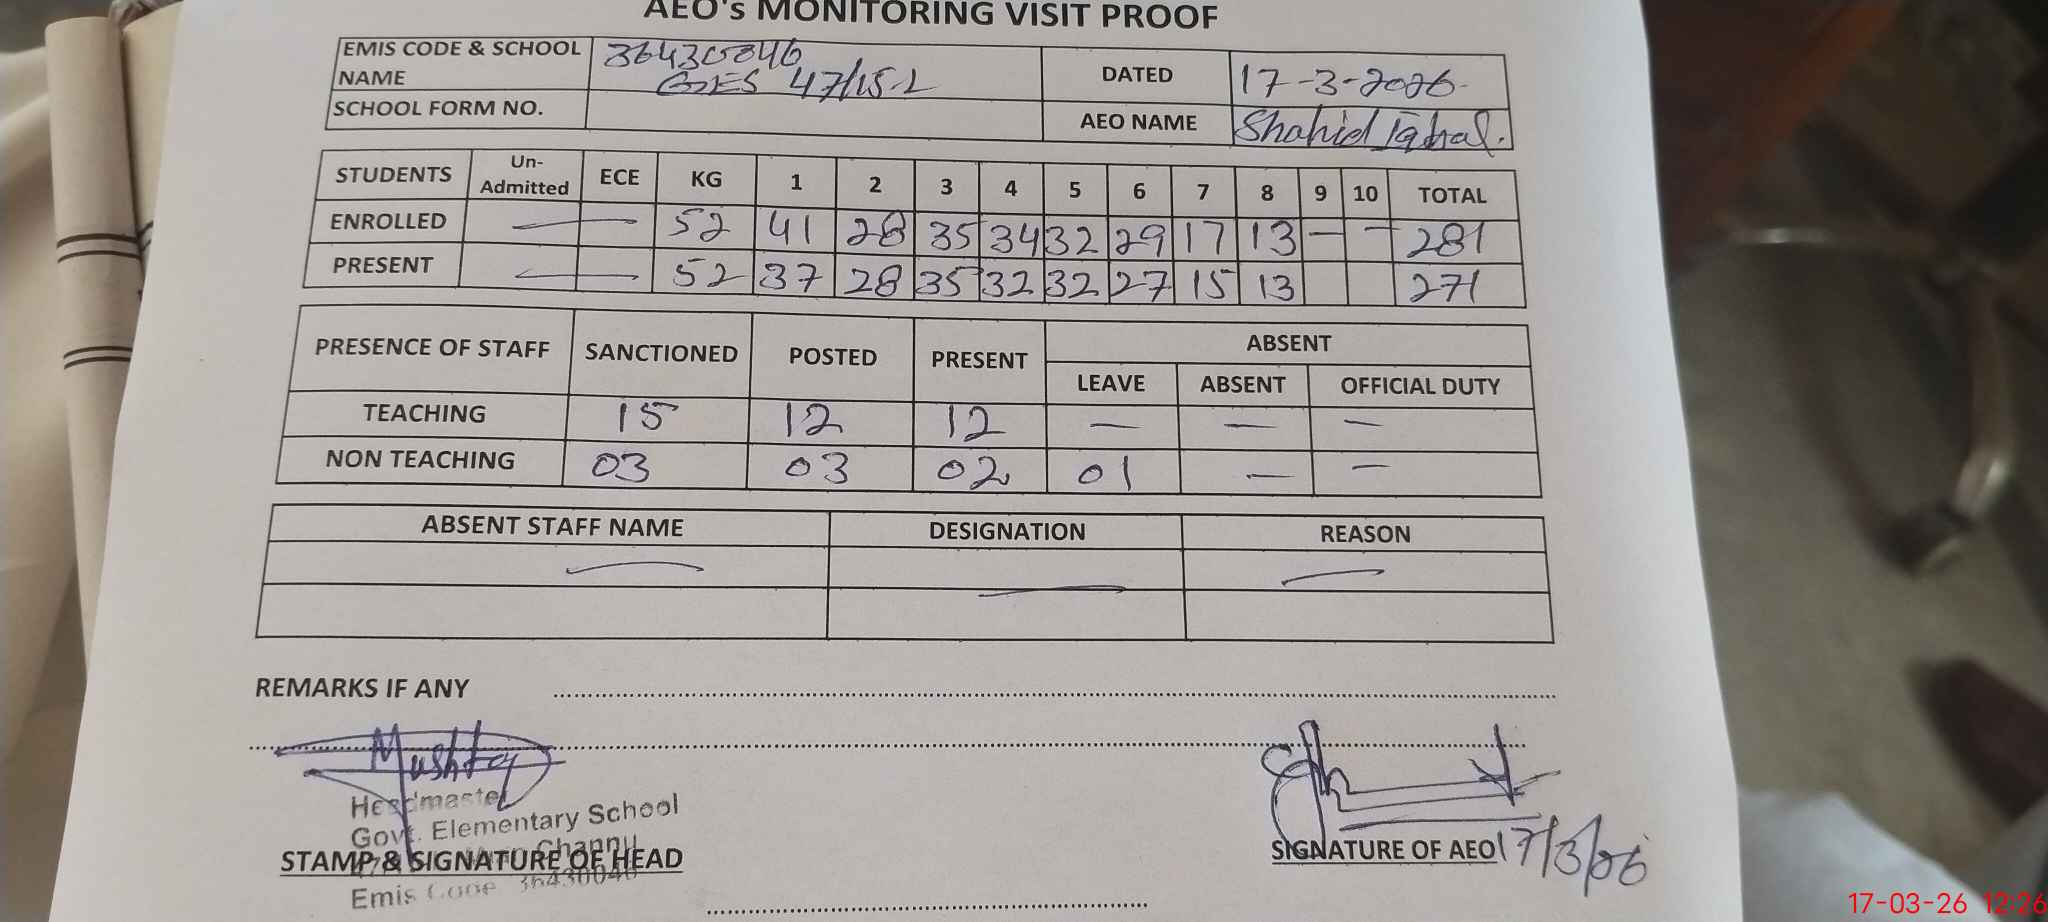 AEO's MONITORING VISIT PROOF
EMIS CODE & SCHOOL NAME 36430046 GES 47/15-L DATED 17-3-2026.
SCHOOL FORM NO. AEO NAME Shahid Iqbal.
STUDENTS Un-Admitted ECE KG 1 2 3 4 5 6 7 8 9 10 TOTAL
ENROLLED — — 52 41 28 35 34 32 29 17 13 — — 281
PRESENT — — 52 37 28 35 32 32 27 15 13 271
PRESENCE OF STAFF SANCTIONED POSTED PRESENT ABSENT
LEAVE ABSENT OFFICIAL DUTY
TEACHING 15 12 12 — — —
NON TEACHING 03 03 02 01 — —
ABSENT STAFF NAME DESIGNATION REASON
— — —
REMARKS IF ANY
Mushtaq
Headmaster
Govt. Elementary School
Channu
STAMP & SIGNATURE OF HEAD
Emis Code 36430046
SIGNATURE OF AEO 17/3/26
17-03-26 12:26